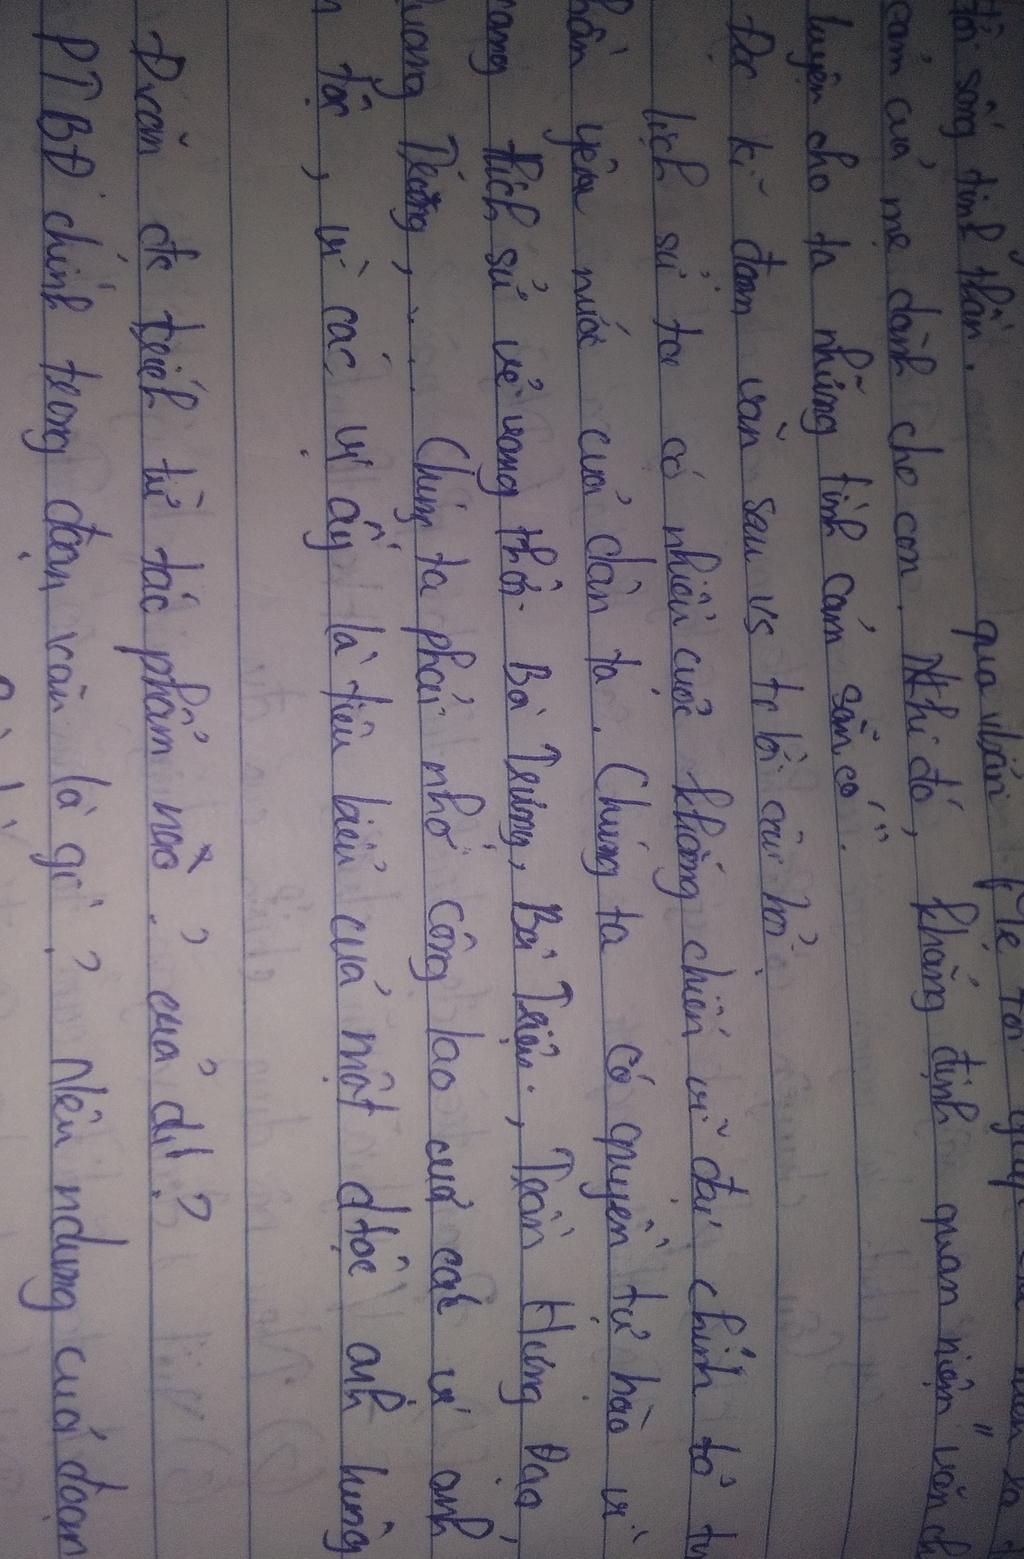 qua văn
đời sống tinh thần.
cảm của mẹ dành cho con. Nhờ đó, khẳng định quan niệm "văn ch
luyện cho ta những tình cảm sẵn có".
Đọc kĩ đoạn văn sau vs trả lời câu hỏi
lịch sử ta có nhiều cuộc kháng chiến vĩ đại chính tỏ t
thần yêu nước của dân ta. Chúng ta có quyền tự hào vì
rang thích sử vẻ vang thời Bà Trưng, Bà Triệu, Trần Hưng Đạo,
uang Trung, ... Chúng ta phải nhớ công lao của các vị anh
tộc, vì các vị ấy là tiêu biểu của một dtộc anh hùng
Đvăn đc trích từ tác phẩm nào? của ai?
PTBĐ chính trong đoạn văn là gì? Nêu ndung của đoạn